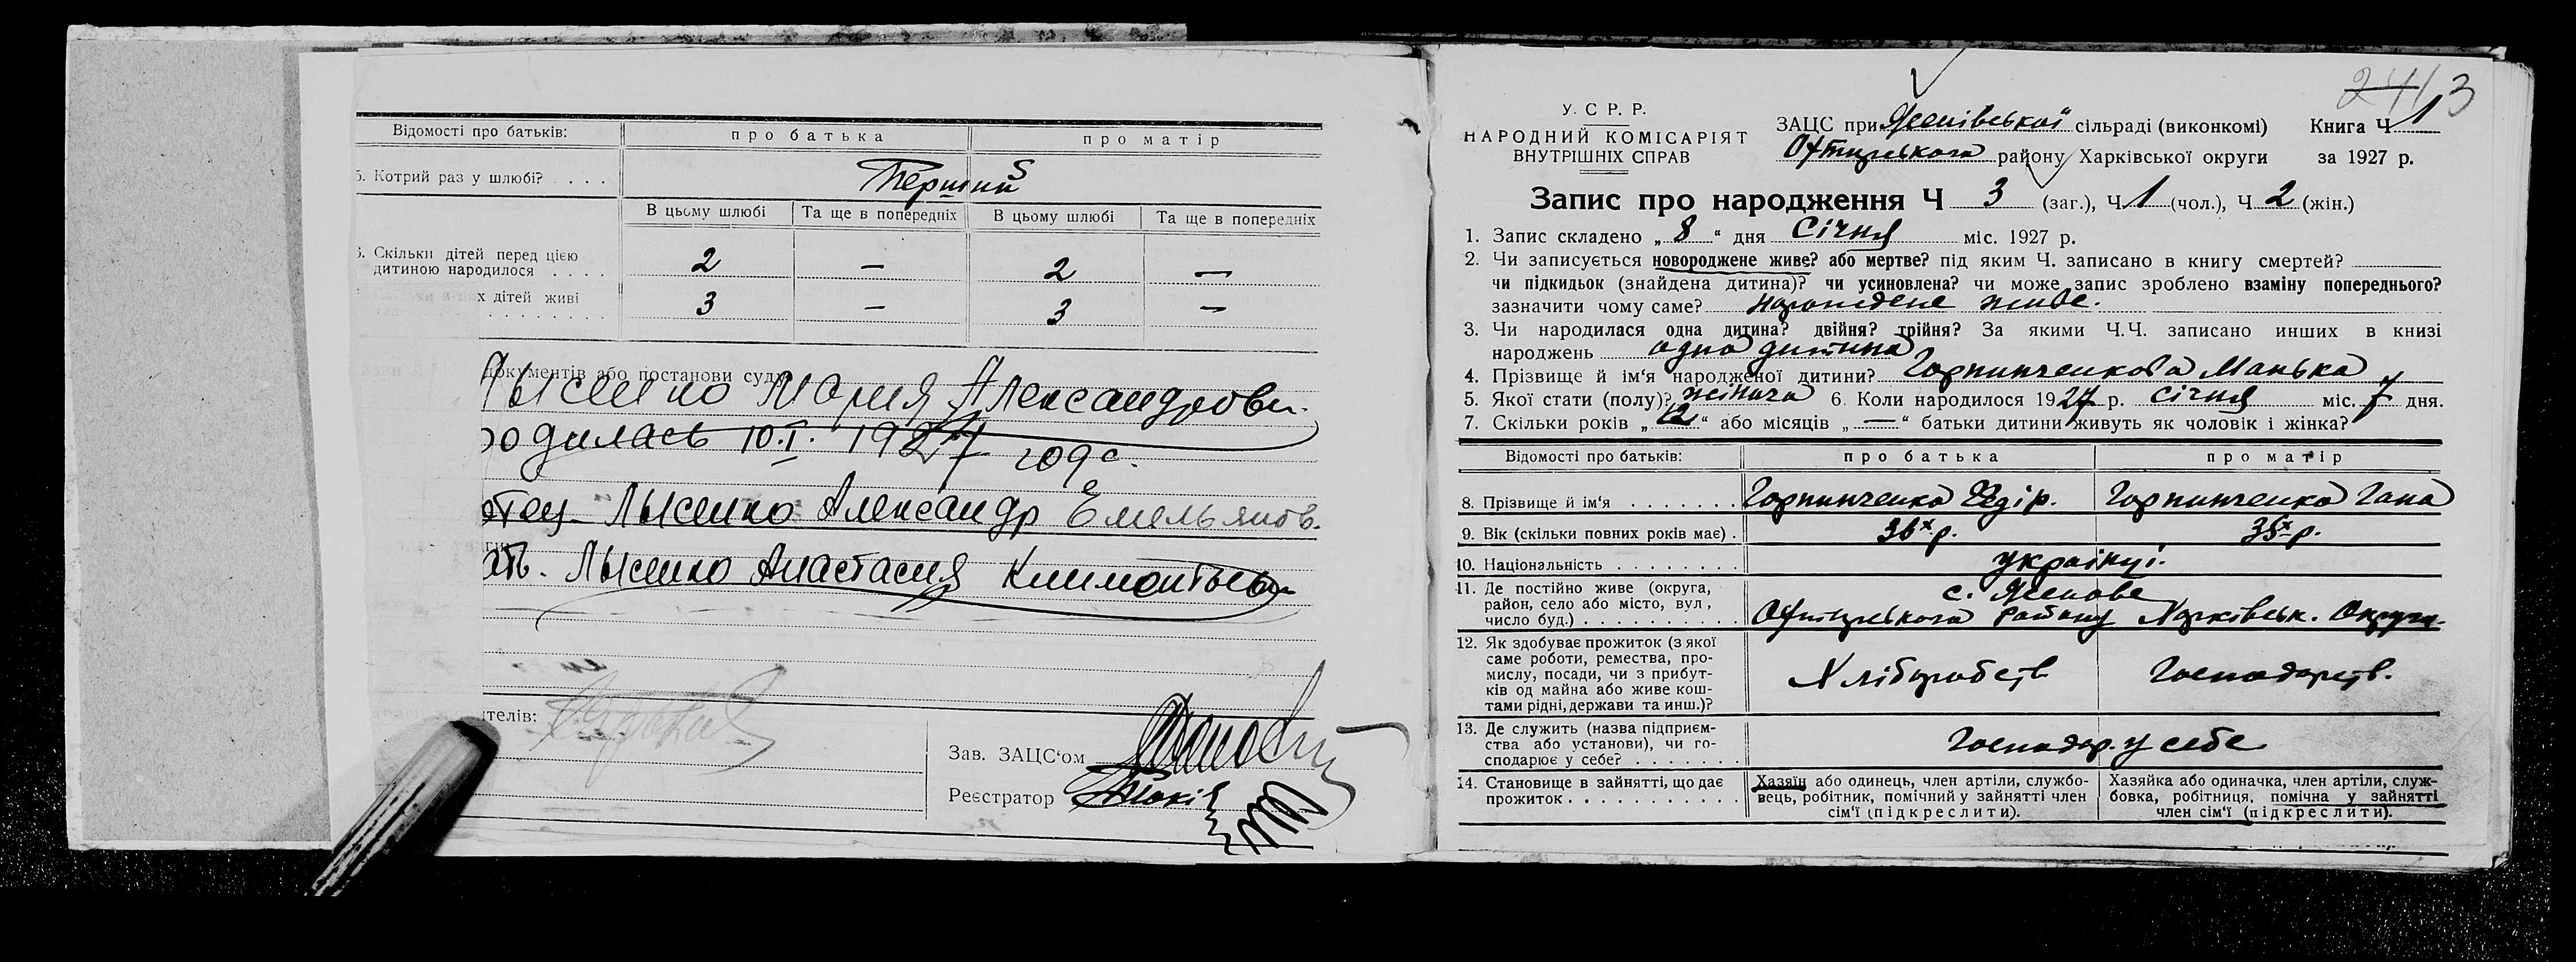 Відомості про батьків: про батька про матір
5. Котрий раз у шлюбі? . . . . Перший
В цьому шлюбі Та ще в попередніх В цьому шлюбі Та ще в попередніх
6. Скільки дітей перед цією
дитиною народилося . . . . 2 — 2 —
х дітей живі
. . . . . . . . 3 — 3 —
документів або постанови суду
Лысенко Мария Александровн.
родилась 10.I. 1927 года.
отец – Лысенко Александр Емельянов.
ать. Лысенко Анастасия Климонтьевн
ителів:
Зав. ЗАЦС‘ом
Реєстратор
2413
У. С. Р. Р.
НАРОДНИЙ КОМІСАРІЯТ
ВНУТРІШНІХ СПРАВ
ЗАЦС при Ясенівської сільраді (виконкомі) Книга Ч 1
району Харківської округи за 1927 р.
Запис про народження Ч 3 (заг.), Ч 1 (чол.), Ч 2 (жін.)
1. Запис складено „ 8 “ дня Січня міс. 1927 р.
2. Чи записується новороджене живе? або мертве? під яким Ч. записано в книгу смертей?
чи підкидьок (знайдена дитина)? чи усиновлена? чи може запис зроблено взаміну попереднього?
зазначити чому саме? народжене живе.
3. Чи народилася одна дитина? двійня? трійня? За якими Ч.Ч. записано инших в книзі
народжень одна дитина
4. Прізвище й ім‘я народженої дитини? Горпинченкова Манька
5. Якої стати (полу)? жіноча 6. Коли народилося 1927 р. січня міс. 7 дня.
7. Скільки років „ 12 “ або місяців „ — “ батьки дитини живуть як чоловік і жінка?
Відомості про батьків: про батька про матір
8. Прізвище й ім‘я . . . . . . . Горпинченко Федір. Горпинченко Гана
9. Вік (скільки повних років має) . 36х р. 35х р.
10. Національність . . . . . . . . українці.
11. Де постійно живе (округа,
район, село або місто, вул.,
число буд.) . . . . . . . . . . . с. Ясенове
району Харківськ. Округи.
12. Як здобуває прожиток (з якої
саме роботи, ремества, про-
мислу, посади, чи з прибут-
ків од майна або живе кош-
тами рідні, держави та инш.)?
Хліборобств Господарств.
13. Де служить (назва підприєм-
ства або установи), чи го-
сподарює у себе? . . . . . . . Господар. у себе
14. Становище в зайнятті, що дає
прожиток . . . . . . . . . . .
Хазяїн або одинець, член артіли, службо-
вець, робітник, помічний у зайнятті член
сім‘ї (підкреслити).
Хазяйка або одиначка, член артіли, служ-
бовка, робітниця, помічна у зайнятті
член сім‘ї (підкреслити).